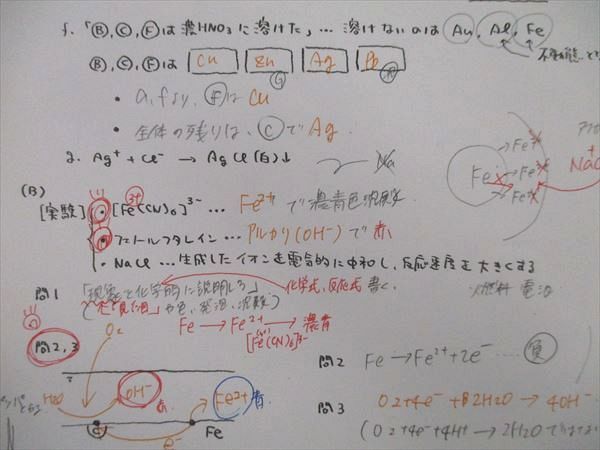 f. 「Ⓑ, Ⓒ, Ⓕは濃HNO3に溶けた」… 溶けないのは Au, Al, Fe
不動態
Ⓑ, Ⓒ, Ⓕは Cu Zn Ag Pb
• a, fより, Ⓕは Cu
• 全体の残りは, Ⓒで Ag.
g. Ag+ + Cl- → AgCl(白)↓
Na
Fe
Fe+
Fe+
Fe+
NaCl
(B)
[実験] • [Fe(CN)6]3- … Fe2+ で濃青色沈殿
3+
• フェノールフタレイン … アルカリ(OH-)で赤
• NaCl … 生成したイオンを電気的に中和し, 反応速度を大きくする
問1 「現象を化学的に説明しろ」 化学式, 反応式 書く.
燃料電池
Fe → Fe2+ → 濃青
[Fe(CN)6]3-
O2
問2, 3
H2O
OH-
赤.
Fe2+ 青.
e-
Fe
問2 Fe → Fe2+ + 2e- … 負
問3 O2 + 4e- + 2H2O → 4OH-
(O2 + 4e- + 4H+ → 2H2O ではない